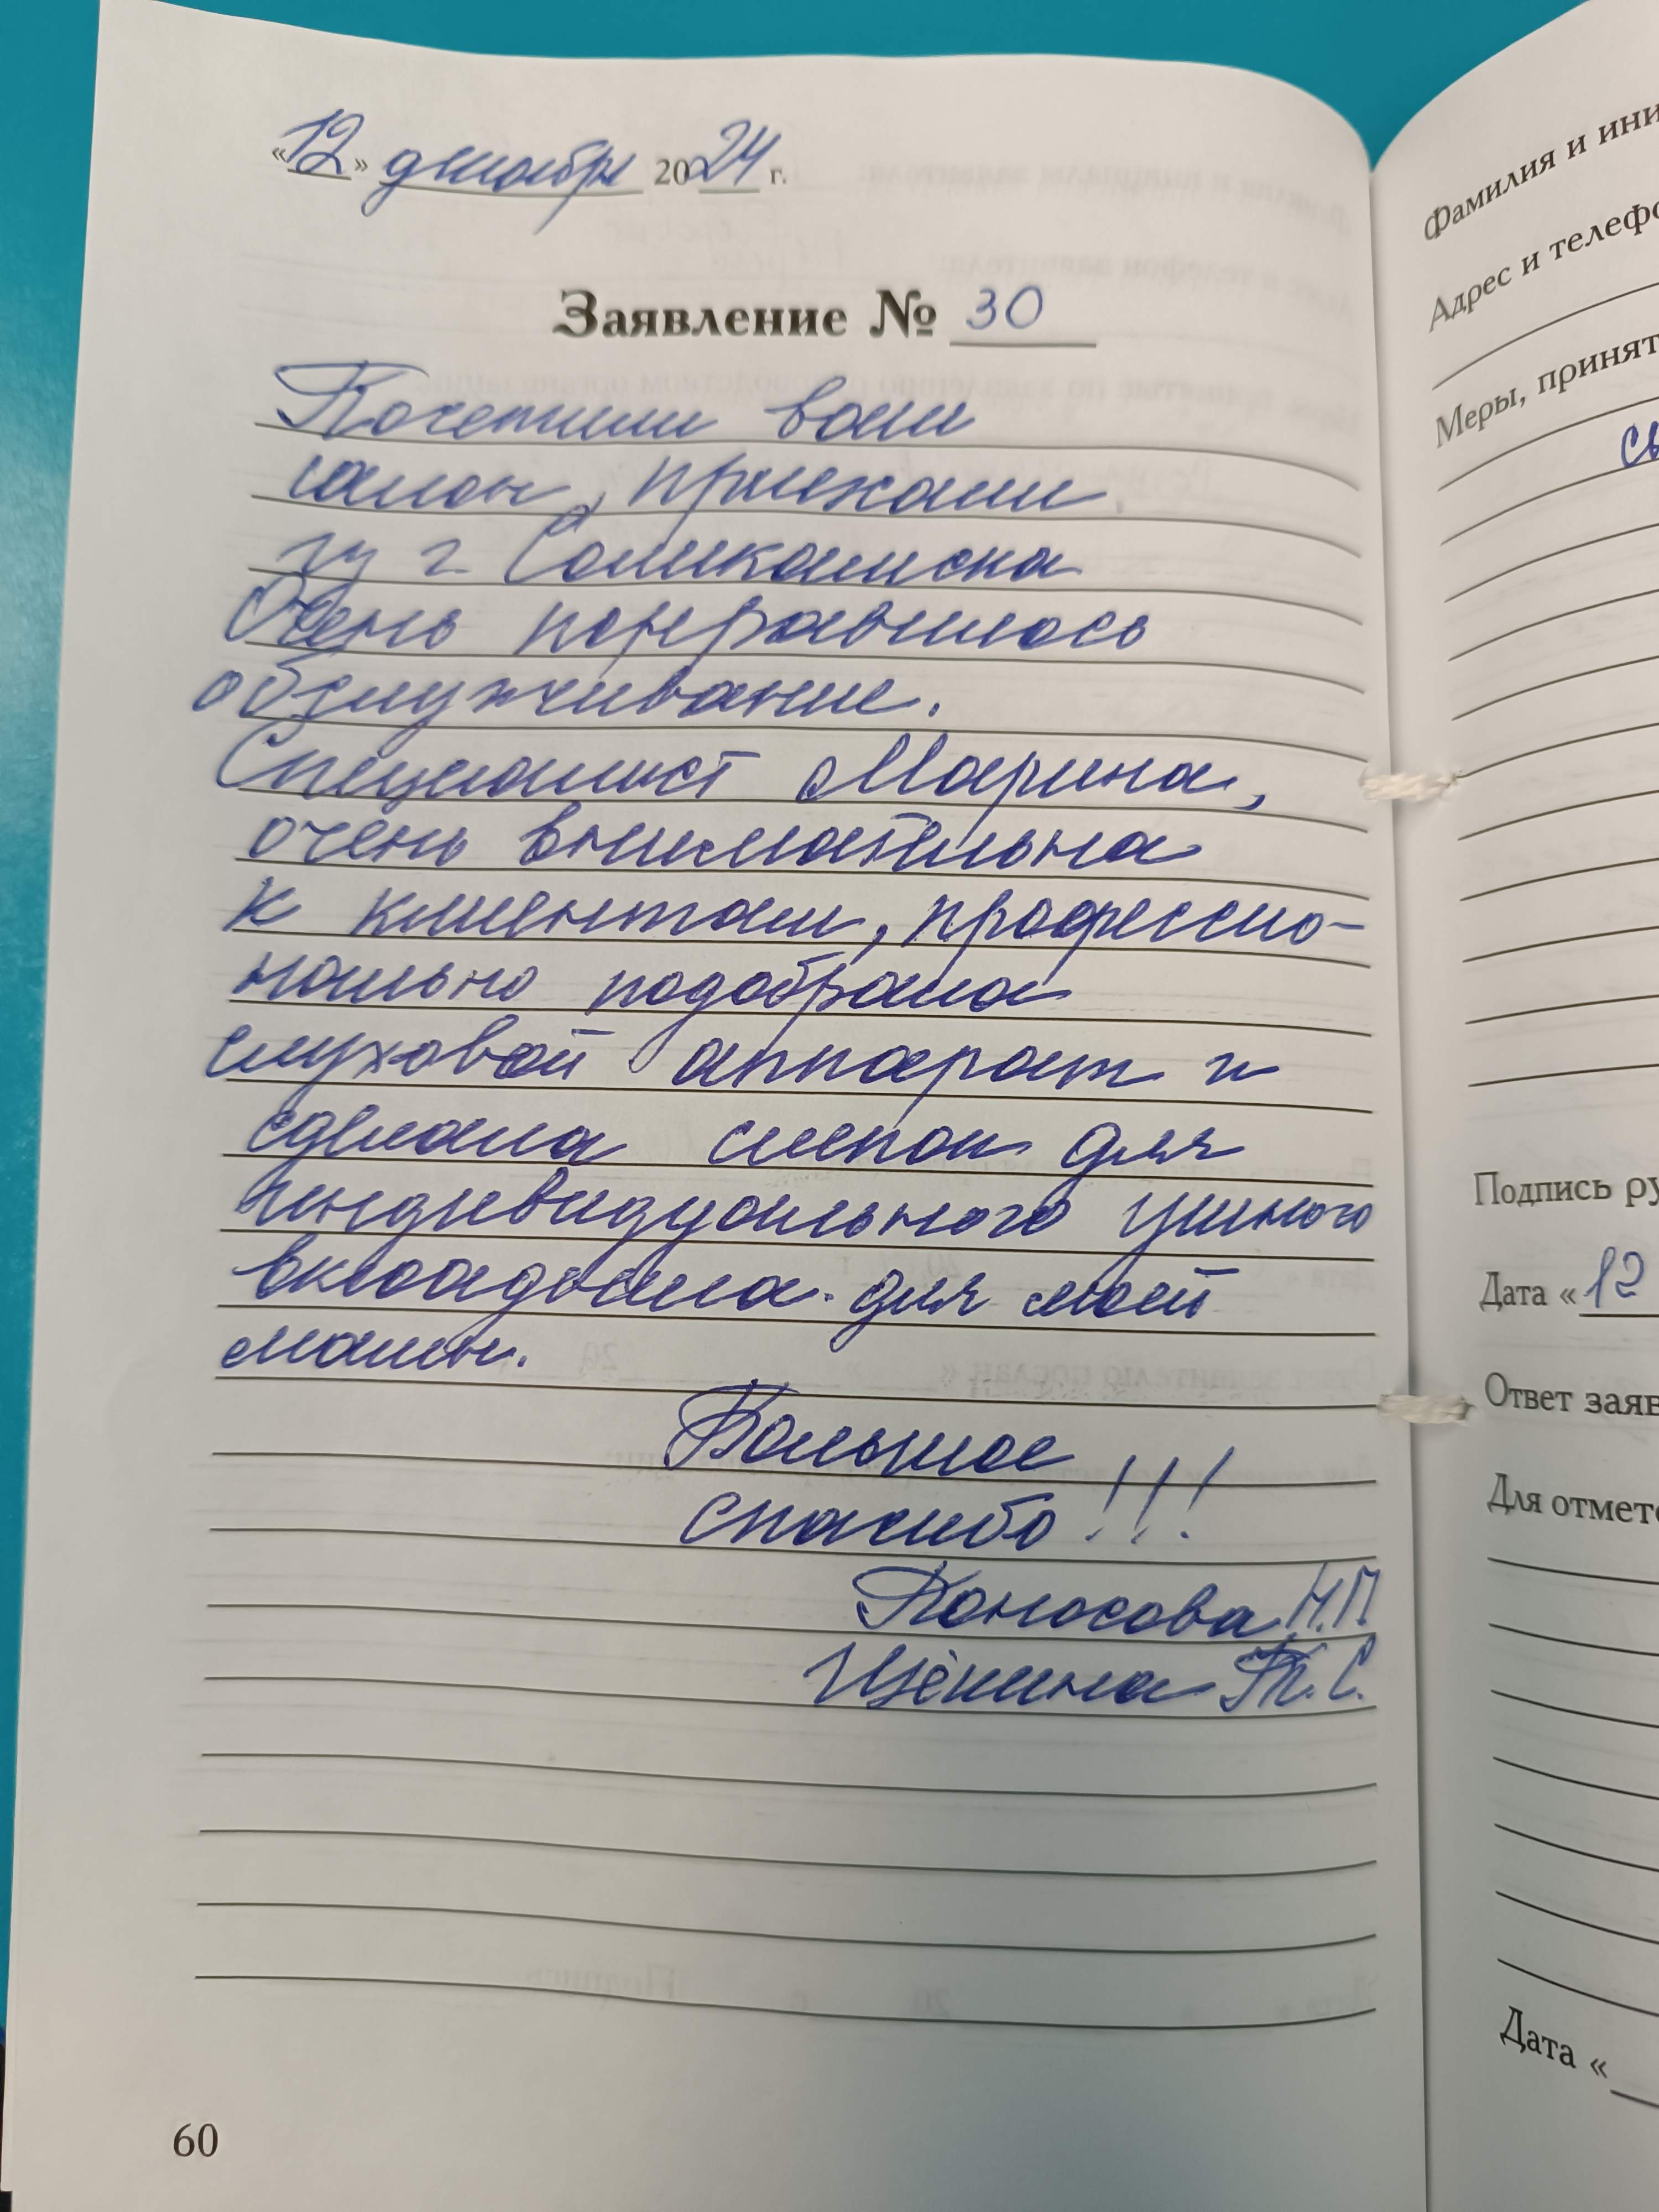 «12» декабря 2024 г.
Заявление № 30
Посетили ваш
салон, приехали
из г. Соликамска
Очень понравилось
обслуживание.
Специалист Марина,
очень внимательна
к клиентам, профессио-
нально подобрала
слуховой аппарат и
сделала слепок для
индивидуального ушного
вкладыша для моей
мамы.
Большое
спасибо!!!
Коносова Н.П
Щёкина Т.С.
60
Фамилия и ини
Адрес и телефо
Меры, принят
Подпись ру
Дата «12
Ответ заяв
Для отмето
Дата «